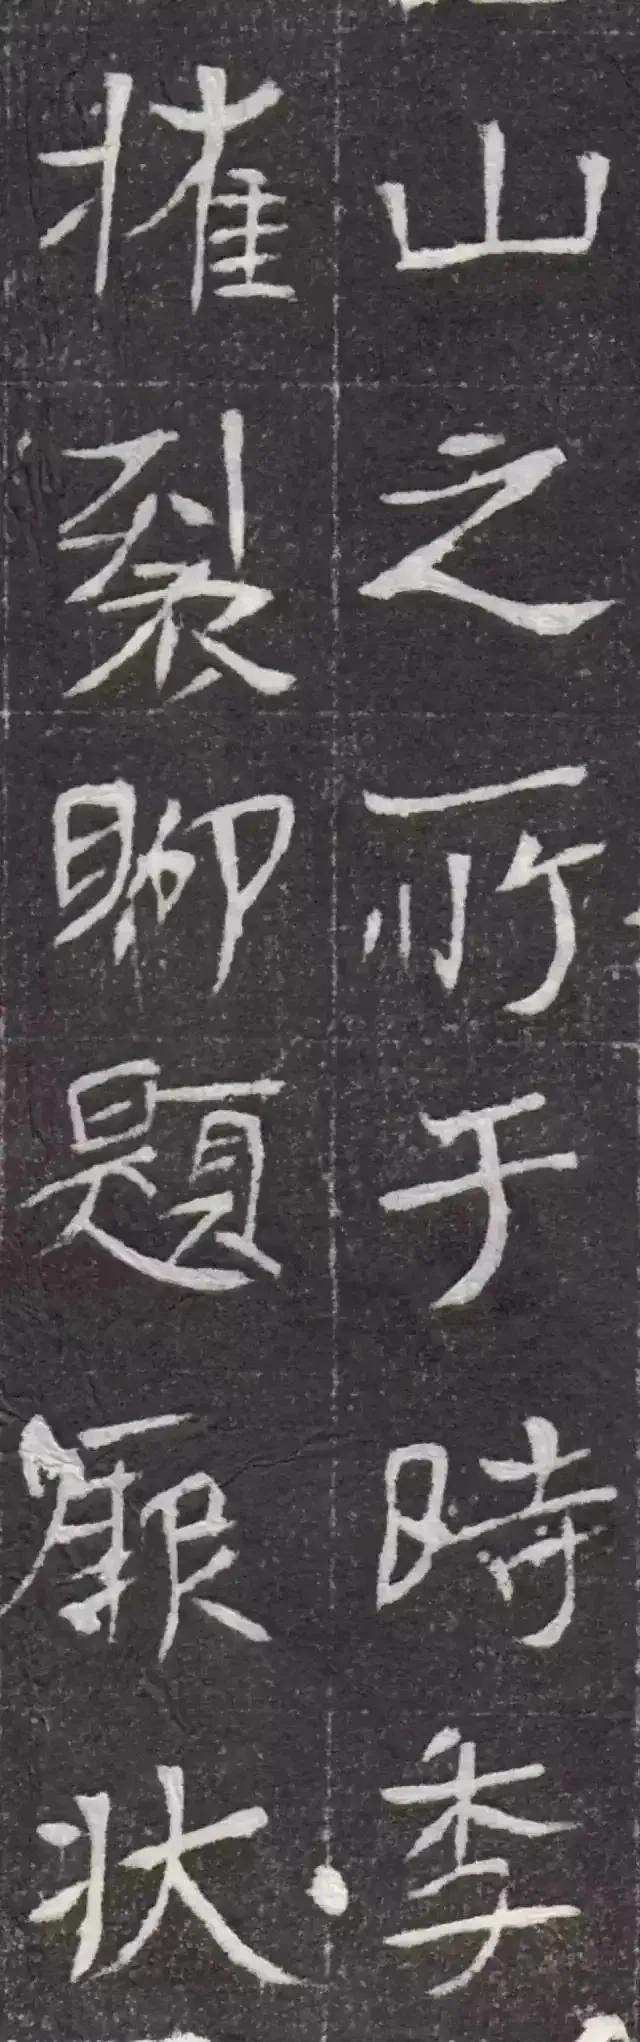 山之所于時季
摧裂聊題厥狀